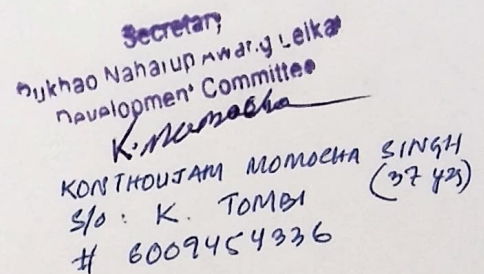 Secretary
Pukhao Naharup Awang Leikai
Development Committee
K. Momocha
KONTHOUJAM MOMOCHA SINGH
(37 yrs)
S/o : K. TOMBI
# 6009454336